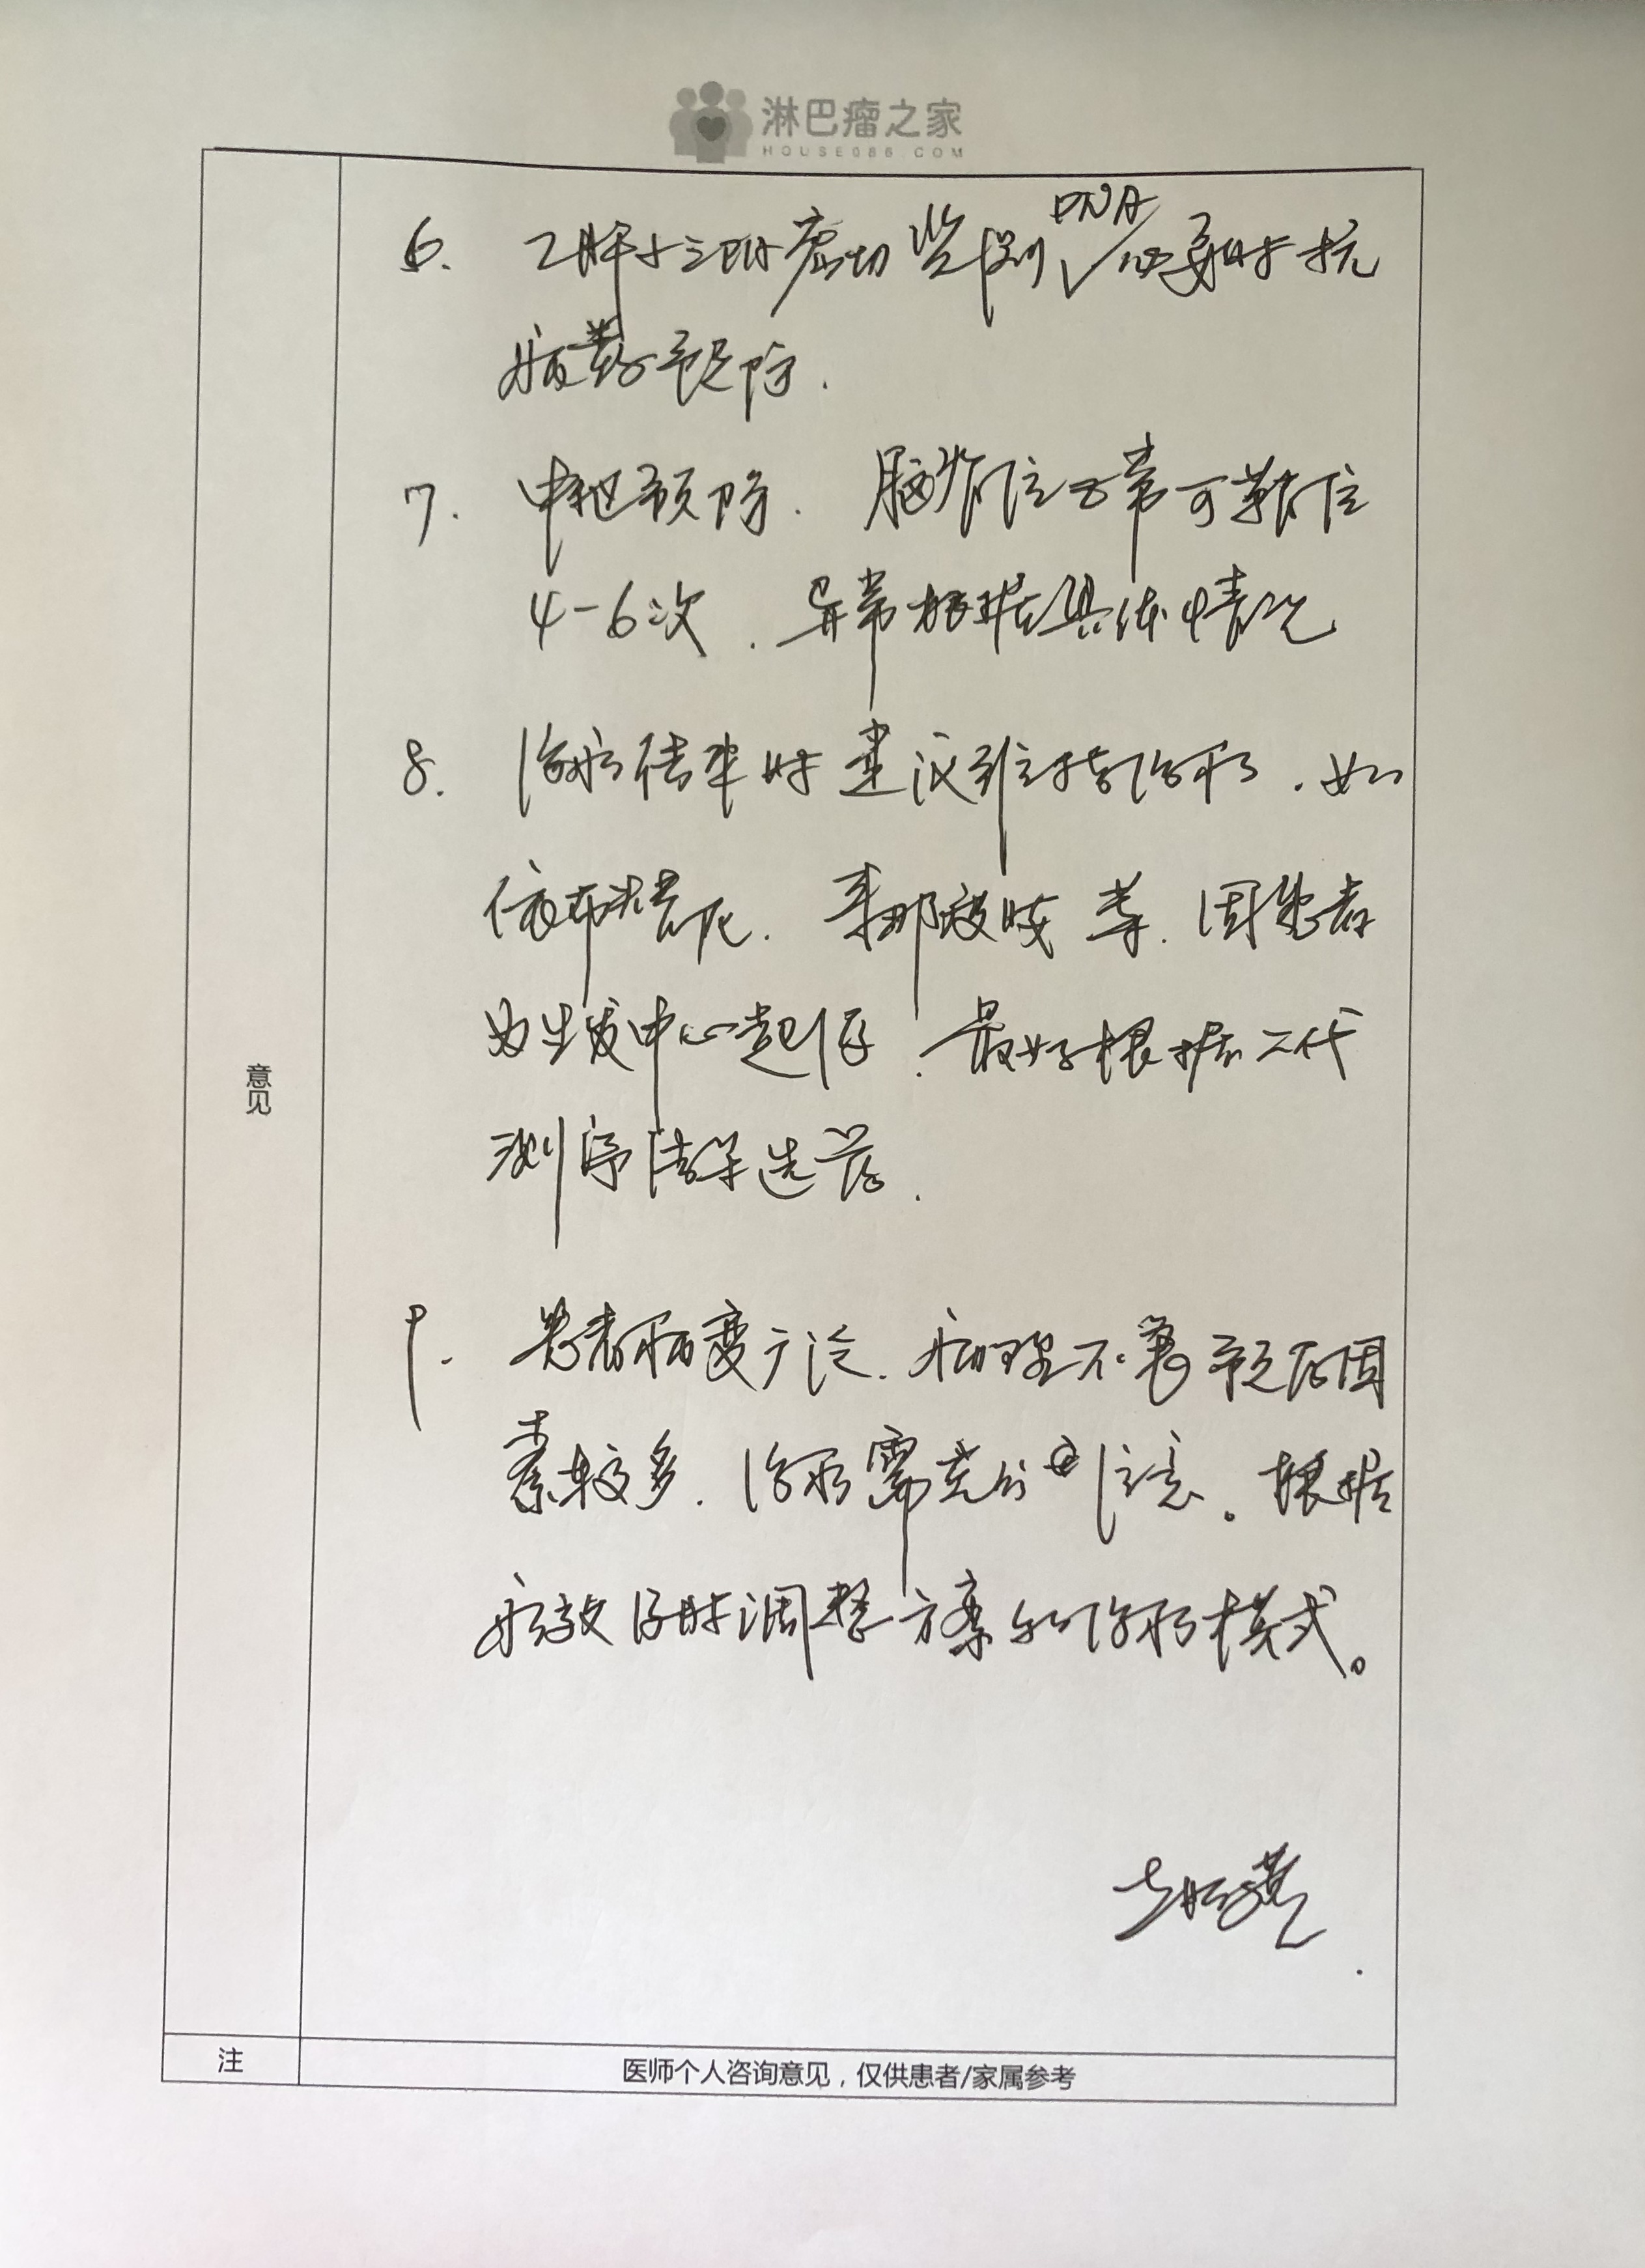 淋巴瘤之家
HOUSE086.COM
6. 乙肝小三阳密切监测DNA必要时抗
病毒预防.
7. 中枢预防. 脑脊液正常可鞘注
4-6次. 异常根据具体情况
8. 治疗结束时建议维持治疗. 如
依布替尼. 来那度胺等. 因患者
为生发中心起源. 最好根据二代
测序结果选药.
9. 患者病变广泛. 病理不良预后因
素较多. 治疗需充分注意。根据
疗效及时调整方案和治疗模式。
意见
注
医师个人咨询意见，仅供患者/家属参考